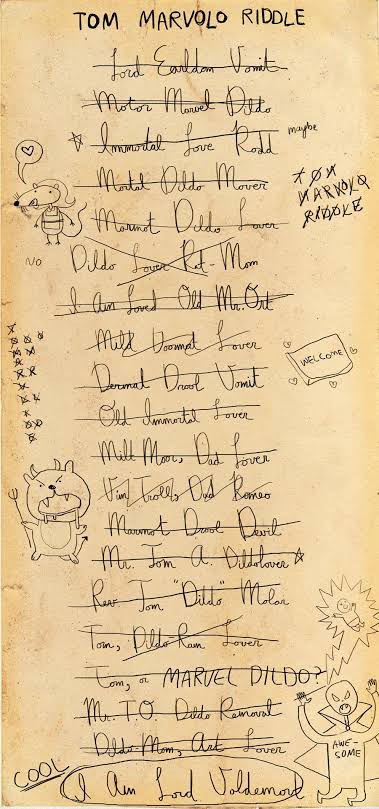 TOM MARVOLO RIDDLE
Lord Earldom Vomit
Motor Marvel Dildo
Immortal Love Rodd
maybe
Mortal Dildo Mover
TOM
MARVOLO
RIDDLE
Marmot Dildo Lover
NO
Dildo Lover Rot-Mom
I Am Loved Old Mr. Ort
Mild Doormat Lover
WELCOME
Dermal Drool Vomit
Old Immortal Lover
Milt Moor, Dad Lover
Vim Troll, Dad Romeo
Marmot Drool Devil
Mr. Tom A. Dildolover
Rev. Tom "Dildo" Molar
Tom, Dildo-Ram Lover
Tom, or MARVEL DILDO?
Mr. T.O. Dildo Removal
Dildo-Mom, Art Lover
AWE
SOME
COOL
I Am Lord Voldemort